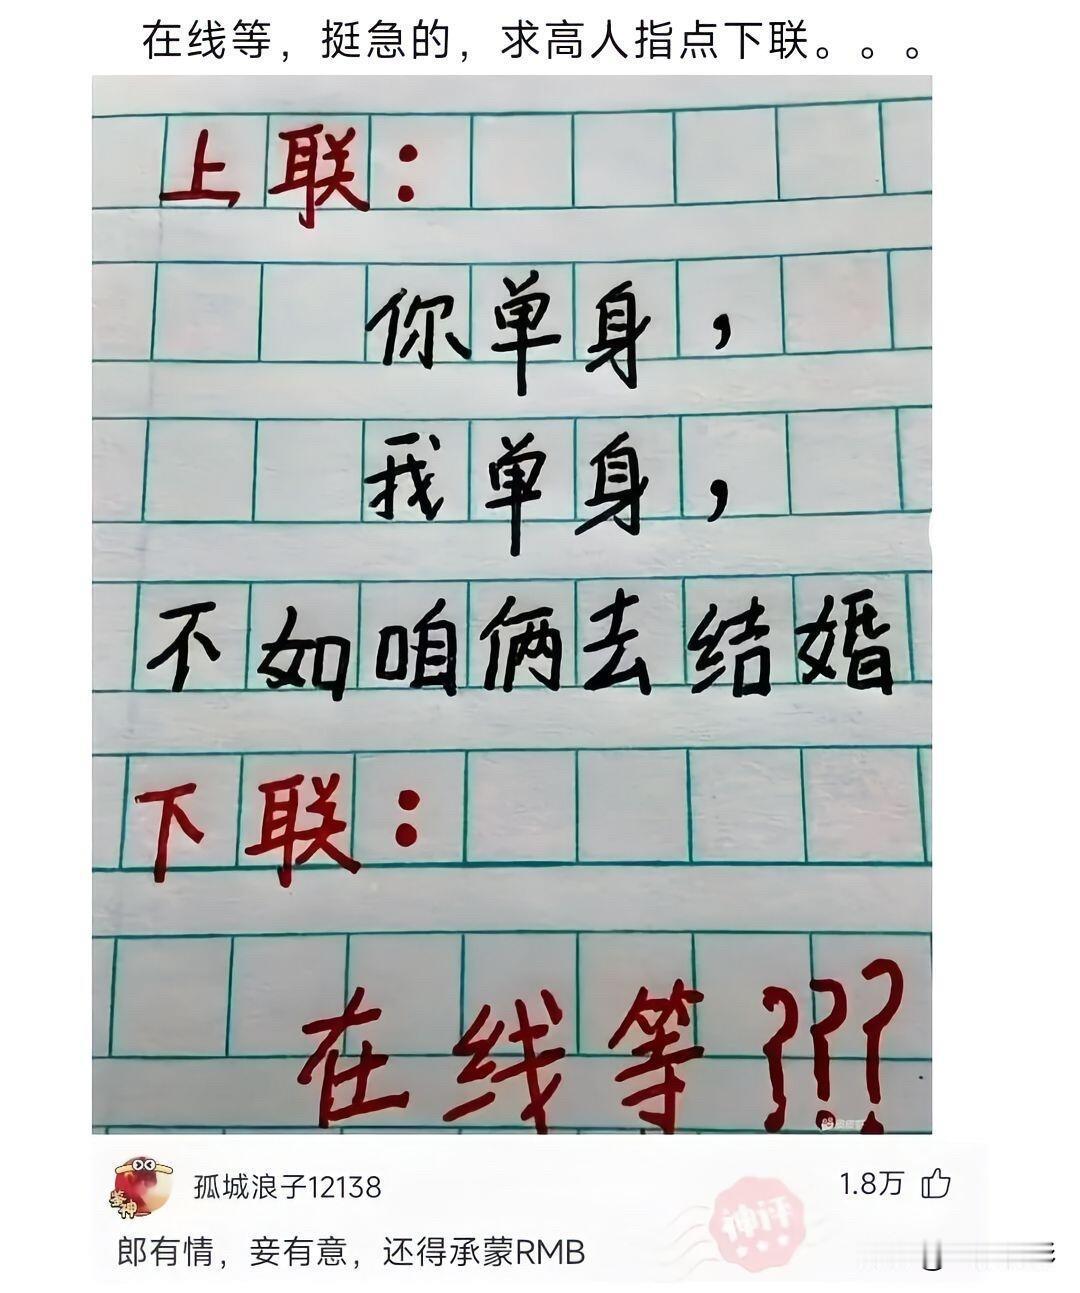 在线等，挺急的，求高人指点下联。。。
上联：
你单身，
我单身，
不如咱俩去结婚
下联：
在线等???
孤城浪子12138
1.8万
鉴神
神评
郎有情，妾有意，还得承蒙RMB